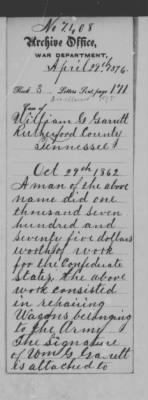 No 7408
Archive Office,
WAR DEPARTMENT,
April 27th 1876.
Book 3 Letters Sent, page 171
Case of
William G Garrett
Rutherford County
Tennessee
Oct 29th 1862
A man of the above
name did one
thousand seven
hundred and
seventy five dollars
worth of work
for the Confederate
States, the above
work consisted
in repairing
Wagons belonging
to the Army.
The signature
of Wm G Garrett
is attached to